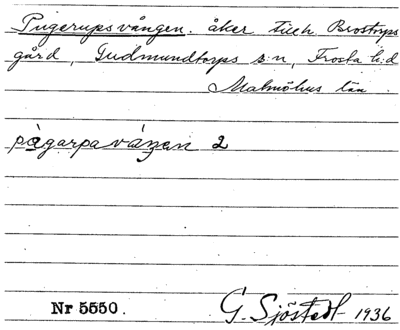 Pugerupsvången. åker till Brostorps
gård, Gudmundtorps s:n, Frosta h:d
Malmöhus län
pa̱garpavåŋen 2
Nr 5550.
G. Sjöstedt 1936